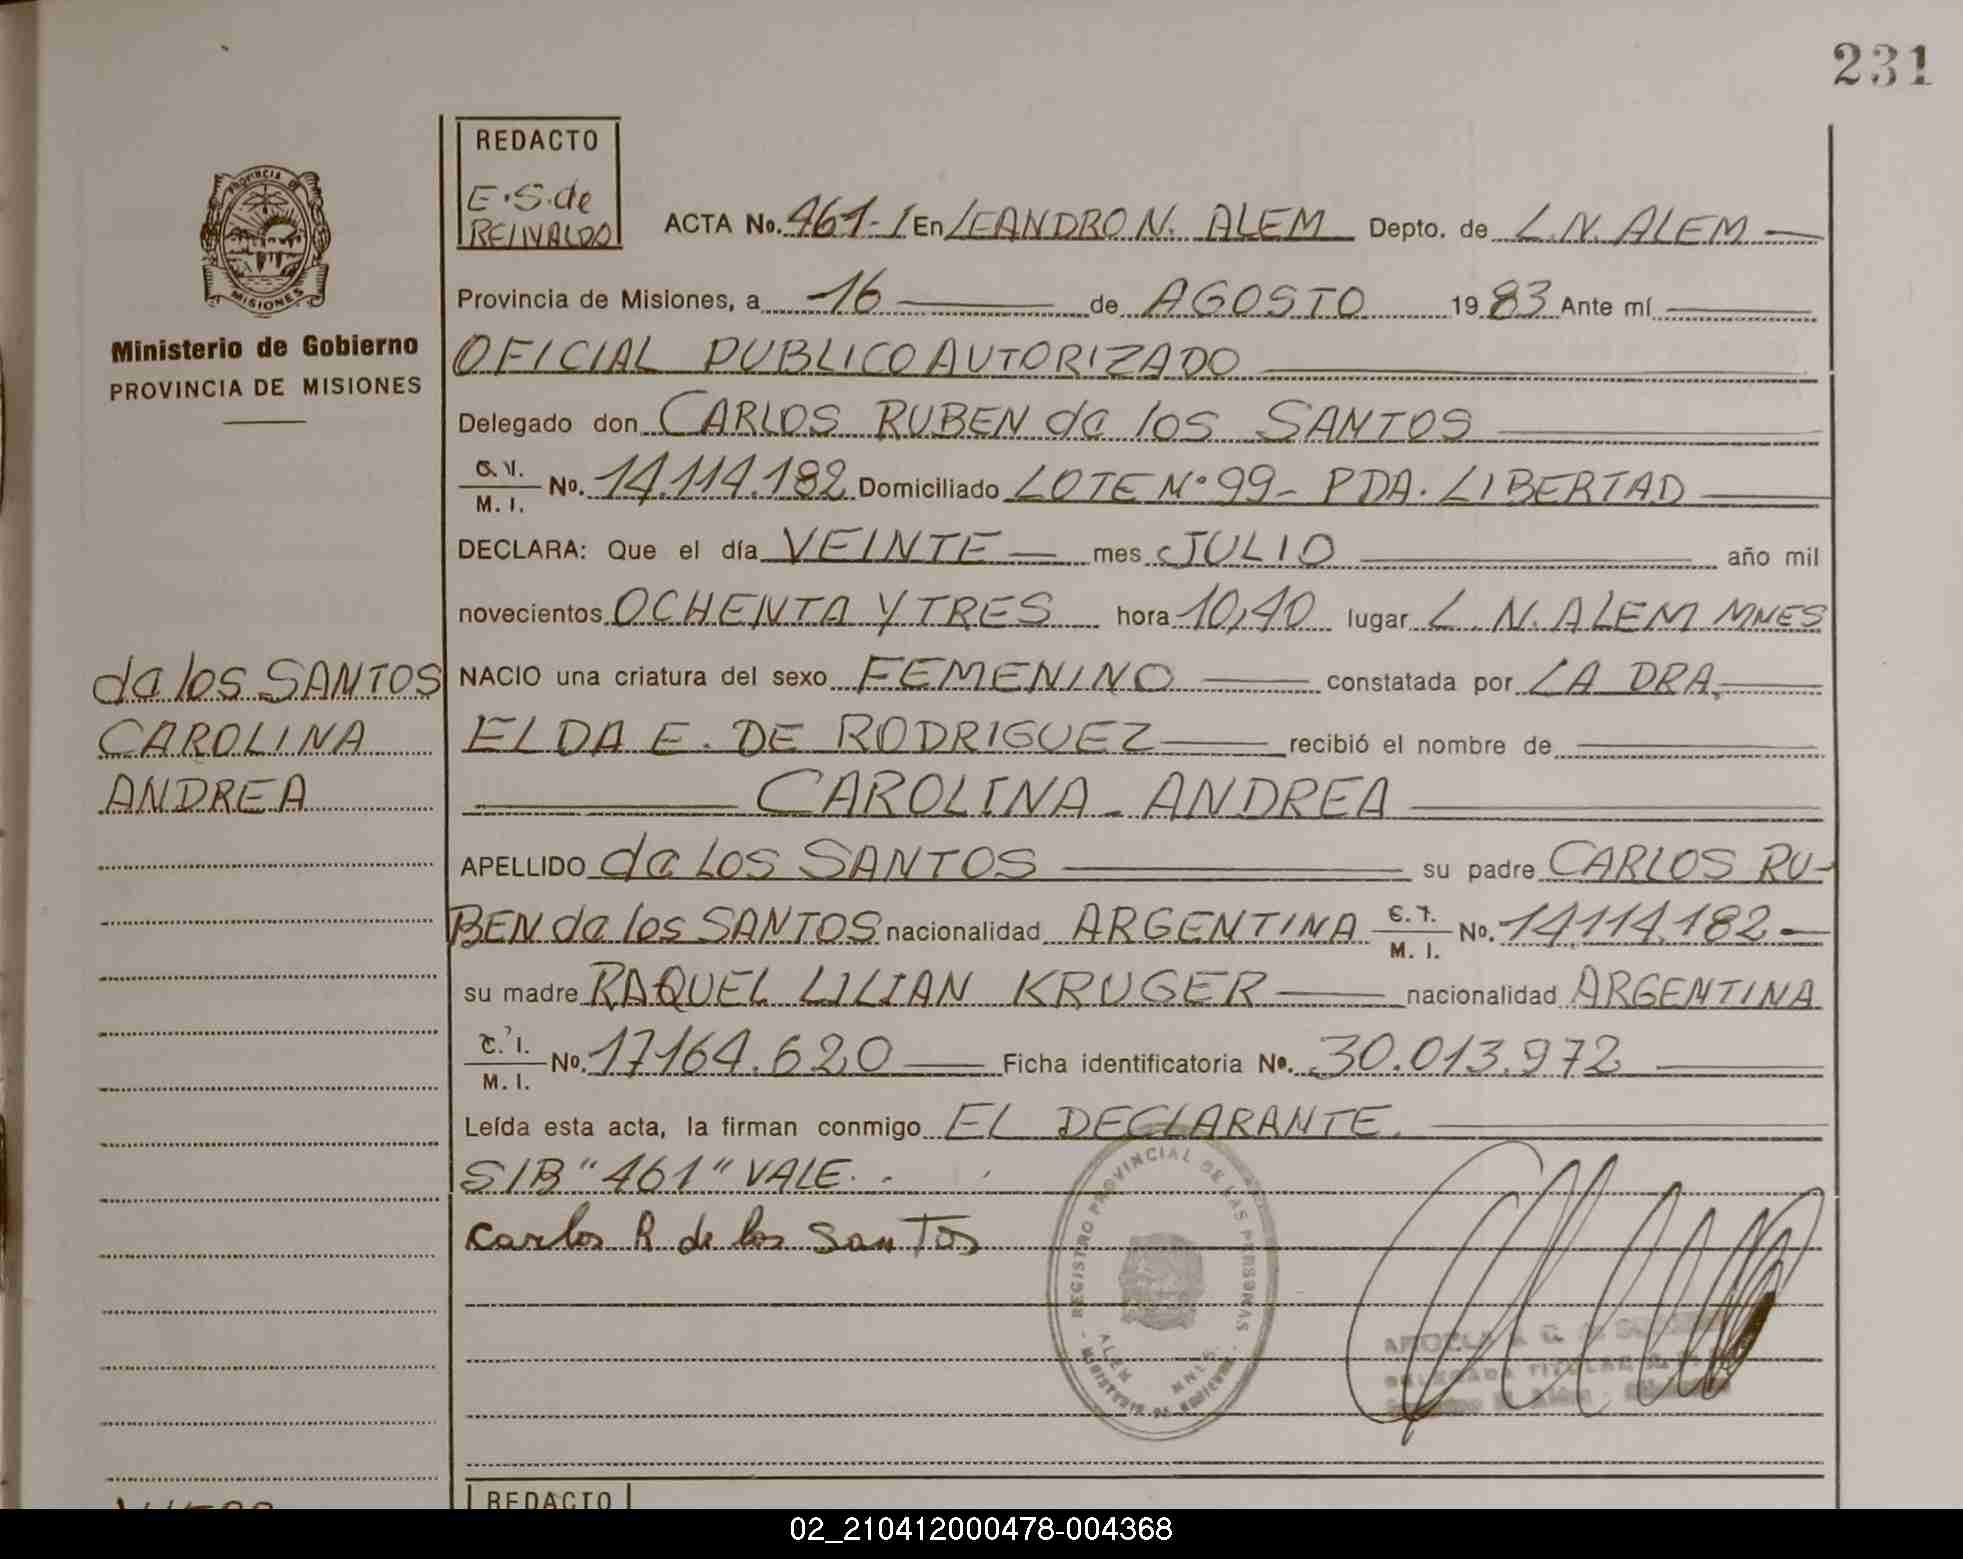 231
REDACTO
E.S. de
REINVALDO
PROVINCIA DE
MISIONES
Ministerio de Gobierno
PROVINCIA DE MISIONES
ACTA No. 461-/ En LEANDRO N. ALEM Depto. de L.N. ALEM
Provincia de Misiones, a 16 de AGOSTO 1983 Ante mí
OFICIAL PUBLICO AUTORIZADO
Delegado don CARLOS RUBEN da los SANTOS
M. I. No. 14.114.182 Domiciliado LOTE Nº 99- PDA. LIBERTAD
DECLARA: Que el día VEINTE mes JULIO año mil
novecientos OCHENTA Y TRES hora 10,40 lugar L. N. ALEM MNES
NACIO una criatura del sexo FEMENINO constatada por LA DRA.
ELDA E. DE RODRIGUEZ recibió el nombre de
CAROLINA - ANDREA
APELLIDO da LOS SANTOS su padre CARLOS RU-
BEN da los SANTOS nacionalidad ARGENTINA M. I. No. 14.114.182
su madre RAQUEL LILIAN KRUGER nacionalidad ARGENTINA
C. I. M. I. No. 17164.620 Ficha identificatoria No. 30.013.972
Leída esta acta, la firman conmigo EL DECLARANTE.
S/B "461" VALE.
Carlos R de los Santos
da los SANTOS
CAROLINA
ANDREA
REGISTRO PROVINCIAL DE LAS PERSONAS
ALEM MNES.
MINISTERIO DE GOBIERNO
DELEGADA TITULAR
REDACTO
02_210412000478-004368